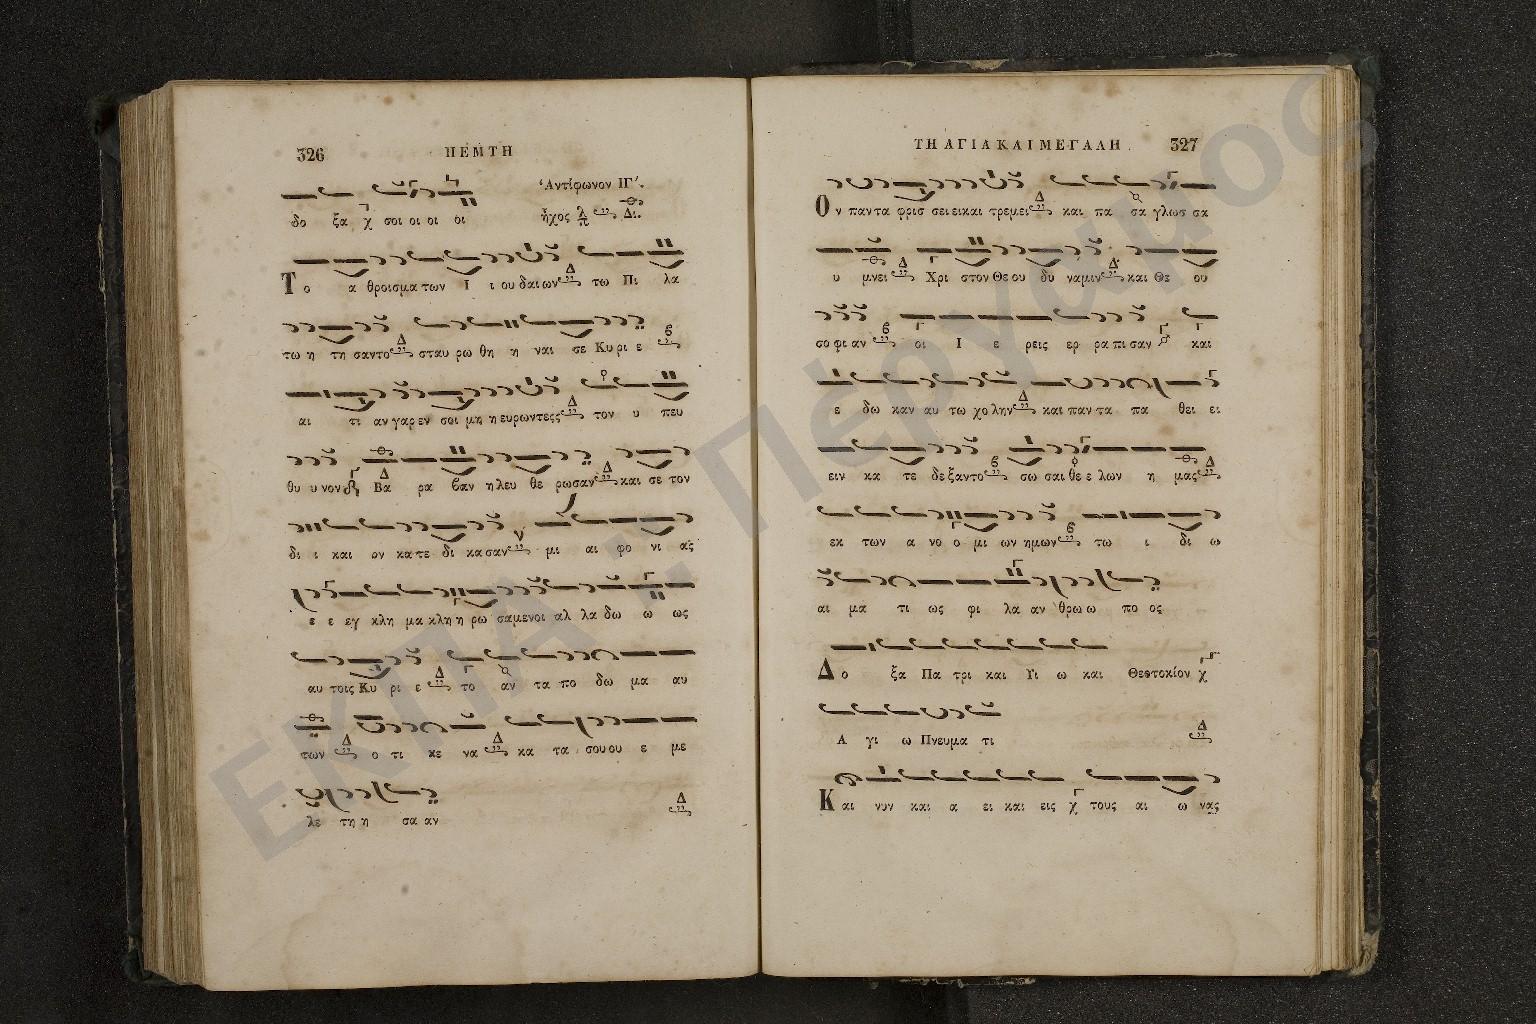 326 ΠΕΜΤΗ
Ἀντίφωνον ΙΓ΄.
δο ξα χ σοι οι οι οι ἦχος λ π Δι.
Το α θροισμα των Ι ι ου δαι ων Δ τω Πι λα
τω η τη σαντο Δ σταυ ρω θη η ναι σε Κυ ρι ε
αι τι αν γαρ εν σοι μη η ευρωντες Δ τον υ πευ
θυ υ νον Βα ρα βαν η λευ θε ρωσαν Δ και σε τον
δι ι και ον κατε δι κασαν μι αι φο νι ας
ε ε εγ κλη μα κλη η ρω σαμενοι αλ λα δω ω ως
αυ τοις Κυ ρι ε Δ το αν τα πο δω μα αυ
των Δ ο τι κε να Δ κα τα σου ου ε με
λε τη η σα αν Δ
ΤΗ ΑΓΙΑ ΚΑΙ ΜΕΓΑΛΗ 327
Ον παντα φρισ σει εικαι τρεμει Δ και πα σα γλωσ σα
υ μνει Δ Χρι στον Θε ου δυ ναμιν Δ και Θε ου
σο φι αν οι Ι ε ρεις ερ ρα πι σαν και
ε δω καν αυ τω χο λην Δ και παν τα πα θει ει
ειν κα τε δεξαντο σω σαι θε ε λων η μας Δ
εκ των α νο ο μι ων ημων τω ι δι ω
αι μα τι ως φι λα αν θρω ω πο ος
Δο ξα Πα τρι και Υι ω και Θεοτοκίον χ
Α γι ω Πνευμα τι Δ
Και νυν και α ει και εις χ τους αι ω νας
ΕΚΠΑ: Πέργαμος